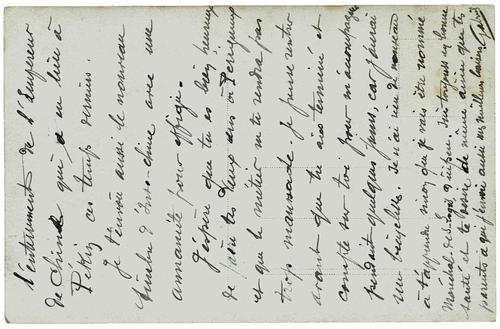 l'enterrement de l'Empereur
de Chine qui a eu lieu à
Pékin ces temps derniers.
Je t'envoie aussi le nouveau
timbre d'Indo-Chine avec une
annamite pour effigie.
J'espère que tu es bien heureux
de faire tes deux ans à Perigueux
et que le métier ne te rendra pas
trop maussade. Je pense rentrer
avant que tu aies terminé et
compte sur toi pour m'accompagner
pendant quelques jours, car j'aurai
ma bicyclette. Je n'ai rien de nouveau
à t'apprendre sinon que je vais être nommé
Maréchal-de-Logis. Suis toujours en bonne
santé et te désire de même ainsi que tes
parents à qui j'envoie aussi mes meilleurs baisers